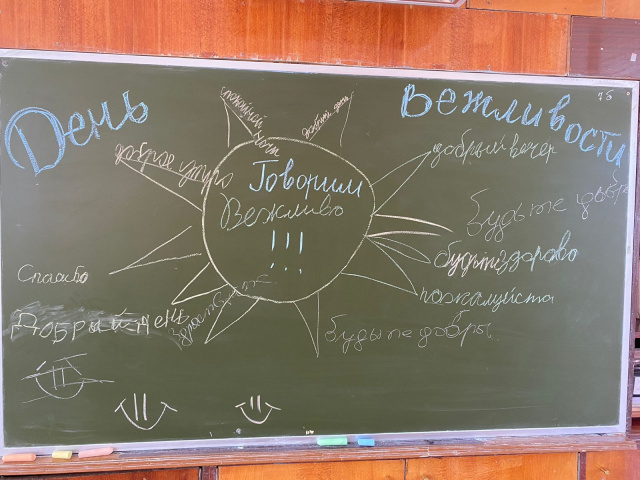 День Вежливости
7б
спокойной ночи
добрый день
доброе утро
добрый вечер
Говорим
Вежливо
!!!
будьте добры
будьте здорово
Спасибо
пожалуйста
Добрый день
здравствуйте
будьте добры.